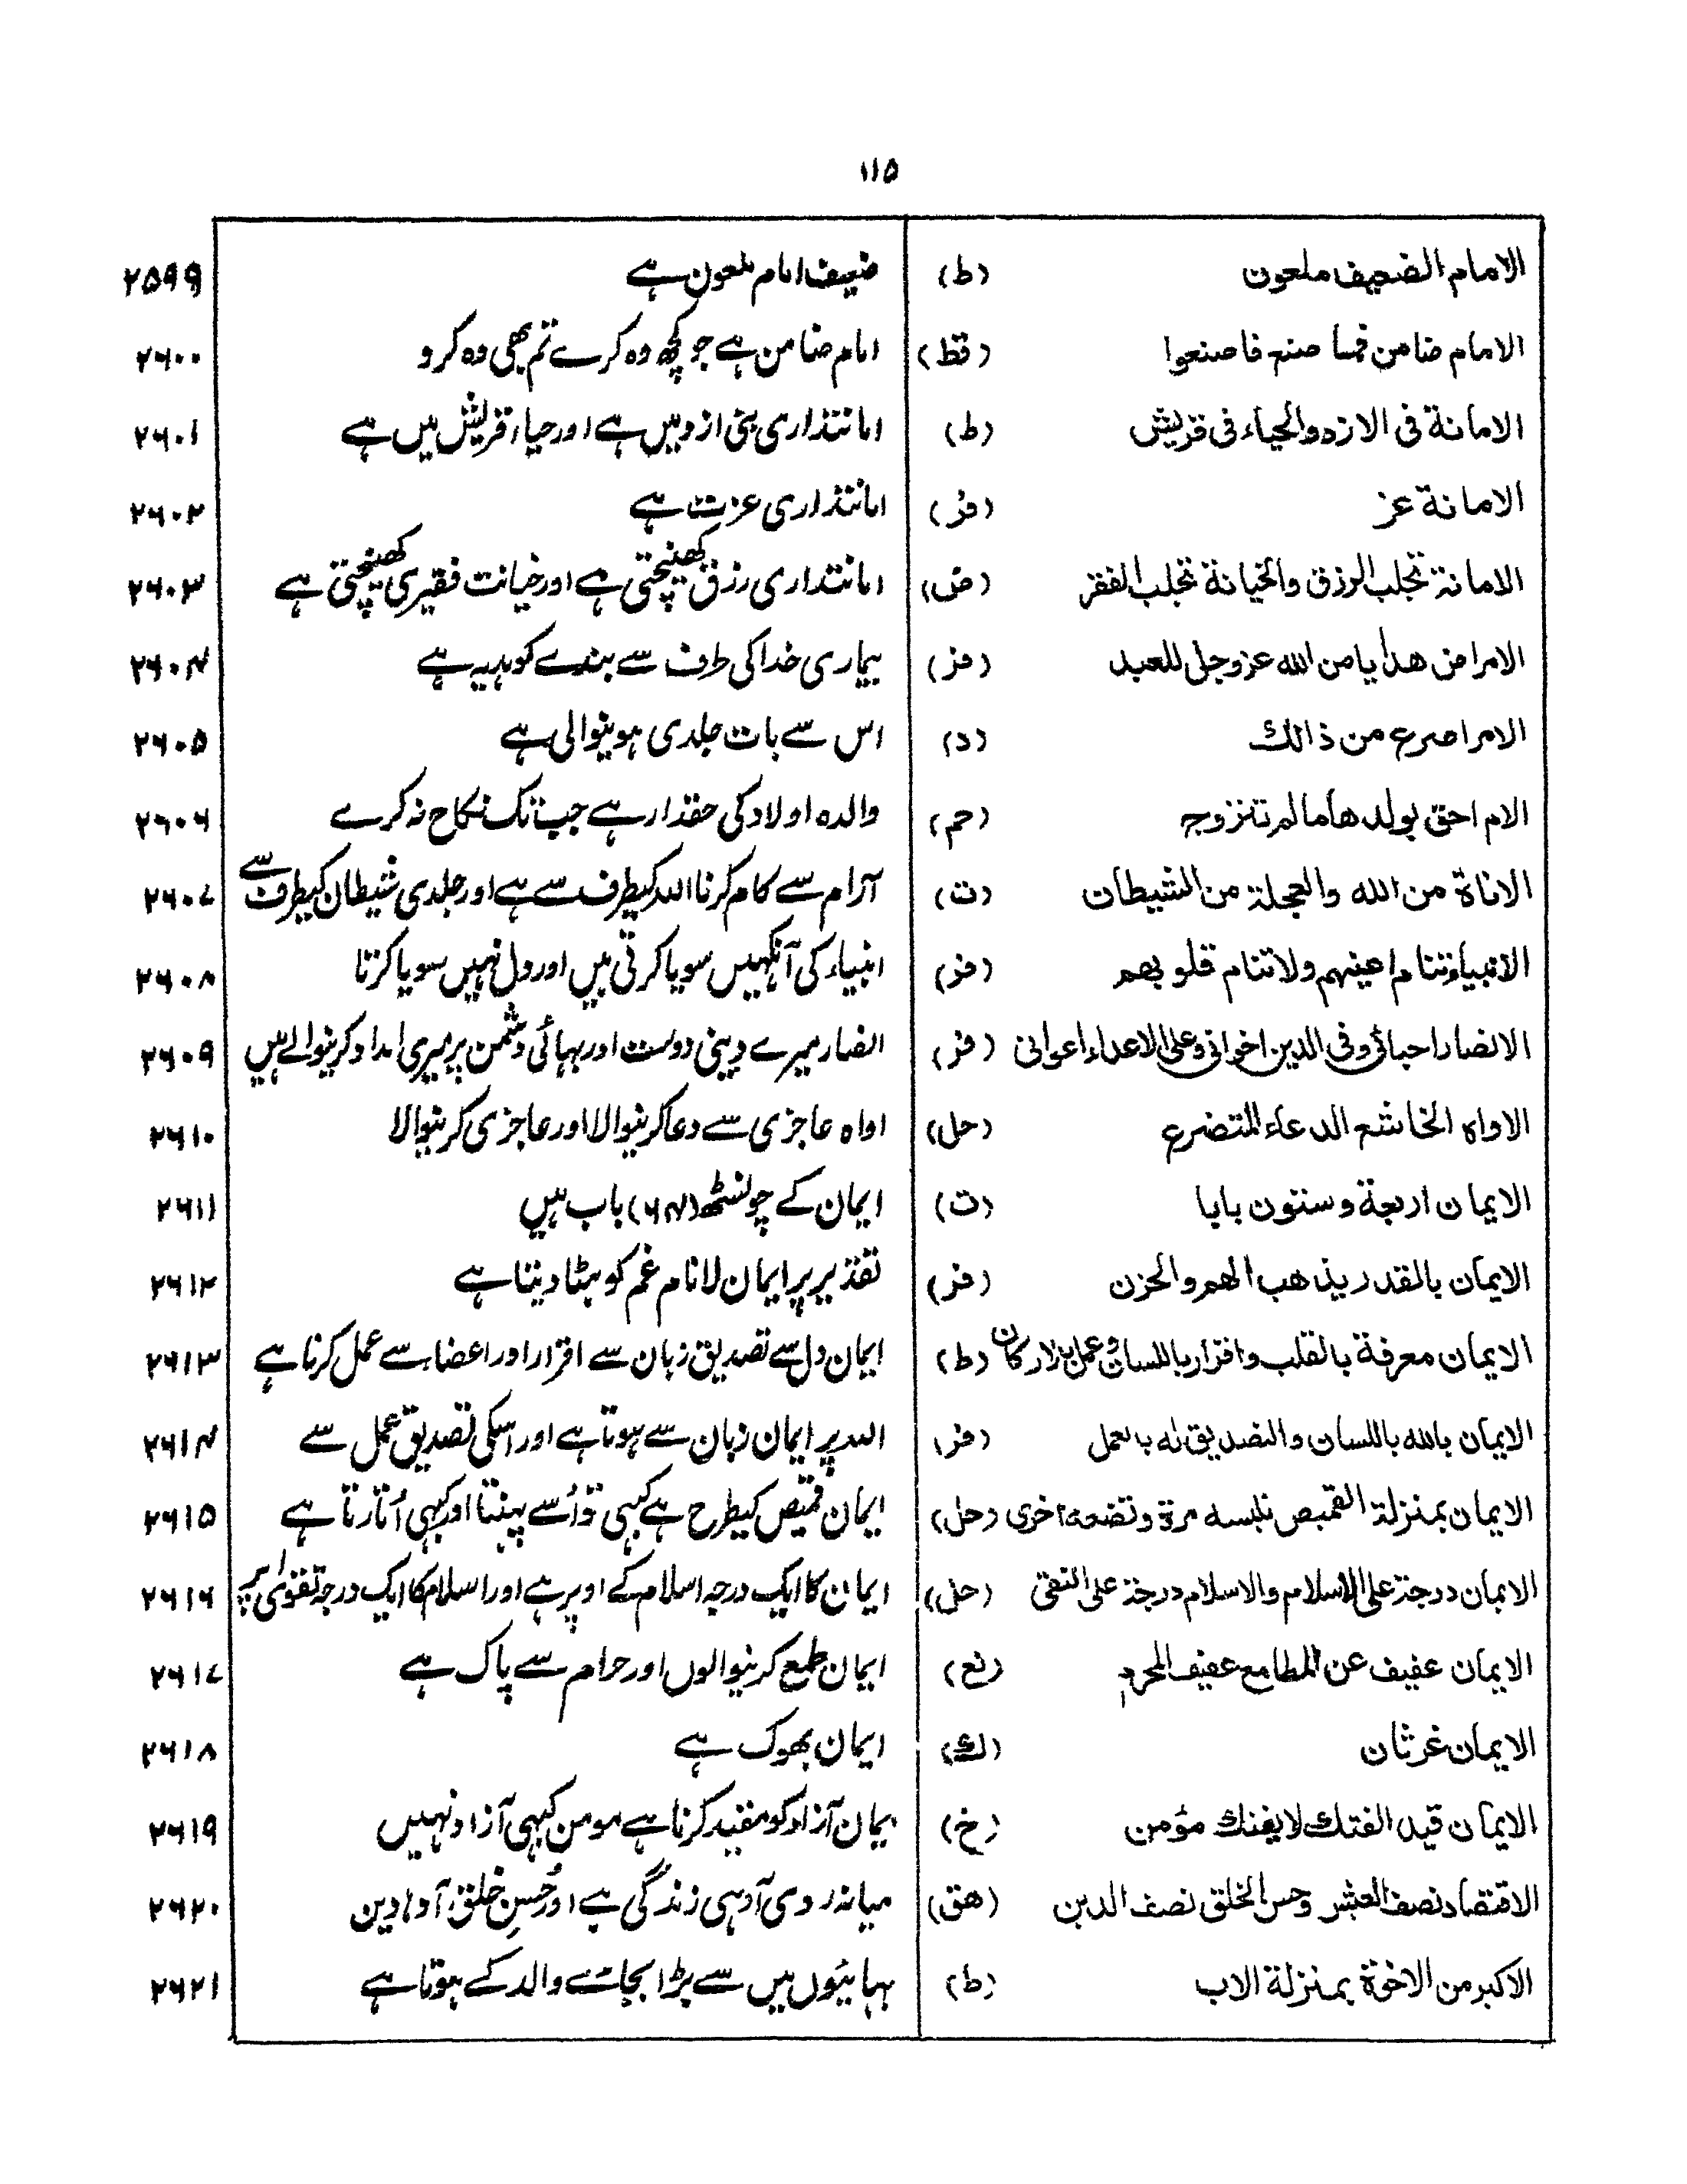 ۱۱۵
الامام الضعیف ملعون (ط) ضعیف امام ملعون ہے ۲۵۹۹
الامام ضامن فما صنع فاصنعوا (قط) امام ضامن ہے جو کچھ وہ کرے تم بھی وہ کرو ۲۶۰۰
الامانة فی الازد والحیاء فی قریش (ط) امانتداری بنی ازد میں ہے اور حیاء قریش میں ہے ۲۶۰۱
الامانة عز (فز) امانتداری عزت ہے ۲۶۰۲
الامانة تجلب الرزق والخیانة تجلب الفقر (ض) امانتداری رزق کھینچتی ہے اور خیانت فقیری کھینچتی ہے ۲۶۰۳
الامراض هدایا من الله عزوجل للعبد (فز) بیماری خدا کی طرف سے بندے کو ہدیہ ہے ۲۶۰۴
الامر اسرع من ذالك (د) اس سے بات جلدی ہونیوالی ہے ۲۶۰۵
الام احق بولدها مالم تتزوج (حم) والدہ اولاد کی حقدار ہے جب تک نکاح نہ کرے ۲۶۰۶
الاناة من الله والعجلة من الشیطان (ت) آرام سے کام کرنا اللہ کیطرف سے ہے اور جلدی شیطان کیطرف سے ۲۶۰۷
الانبیاء تنام اعینهم ولا تنام قلوبهم (فز) انبیاء کی آنکہیں سویا کرتی ہیں اور دل نہیں سویا کرتا ۲۶۰۸
الانصار احبائی وفی الدین اخوانی وعلی الاعداء اعوانی (فز) انصار میرے دینی دوست اور بہائی دشمن پر میری امداد کرنیوالے ہیں ۲۶۰۹
الاواه الخاشع الدعاء المتضرع (حل) اواہ عاجزی سے دعا کرنیوالا اور عاجزی کرنیوالا ۲۶۱۰
الایمان اربعة وستون بابا (ت) ایمان کے چونسٹھ (۶۴) باب ہیں ۲۶۱۱
الایمان بالقدر یذهب الهم والحزن (فز) تقدیر پر ایمان لانا غم کو ہٹا دیتا ہے ۲۶۱۲
الایمان معرفة بالقلب واقرار باللسان وعمل بالارکان (ط) ایمان دل سے تصدیق زبان سے اقرار اور اعضاء سے عمل کرنا ہے ۲۶۱۳
الایمان بالله باللسان والتصدیق له بالعمل (فز) اللہ پر ایمان زبان سے ہوتا ہے اور اسکی تصدیق عمل سے ۲۶۱۴
الایمان بمنزلة القمیص تلبسه مرة وتضعه اخری (حل) ایمان قمیص کیطرح ہے کبہی تو اُسے پہنتا اور کبہی اُتارتا ہے ۲۶۱۵
الایمان درجة علی الاسلام والاسلام درجة علی التقی (حل) ایمان کا ایک درجہ اسلام کے اوپر ہے اور اسلام کا ایک درجہ تقوای پر ۲۶۱۶
الایمان عفیف عن المطامع عفیف المحرم (نع) ایمان طمع کرنیوالوں اور حرام سے پاک ہے ۲۶۱۷
الایمان غرثان (ك) ایمان بھوک ہے ۲۶۱۸
الایمان قید الفتك لا یفتك مؤمن (خ) یمان آزاد کو مقید کرتا ہے مومن کبہی آزاد نہیں ۲۶۱۹
الاقتصاد نصف العیش وحسن الخلق نصف الدین (هق) میانہ روی آدہی زندگی ہے اور حُسنِ خلق آدہا دین ۲۶۲۰
الاکبر من الاخوة بمنزلة الاب (ط) بہائیوں میں سے بڑا بجائے والد کے ہوتا ہے ۲۶۲۱